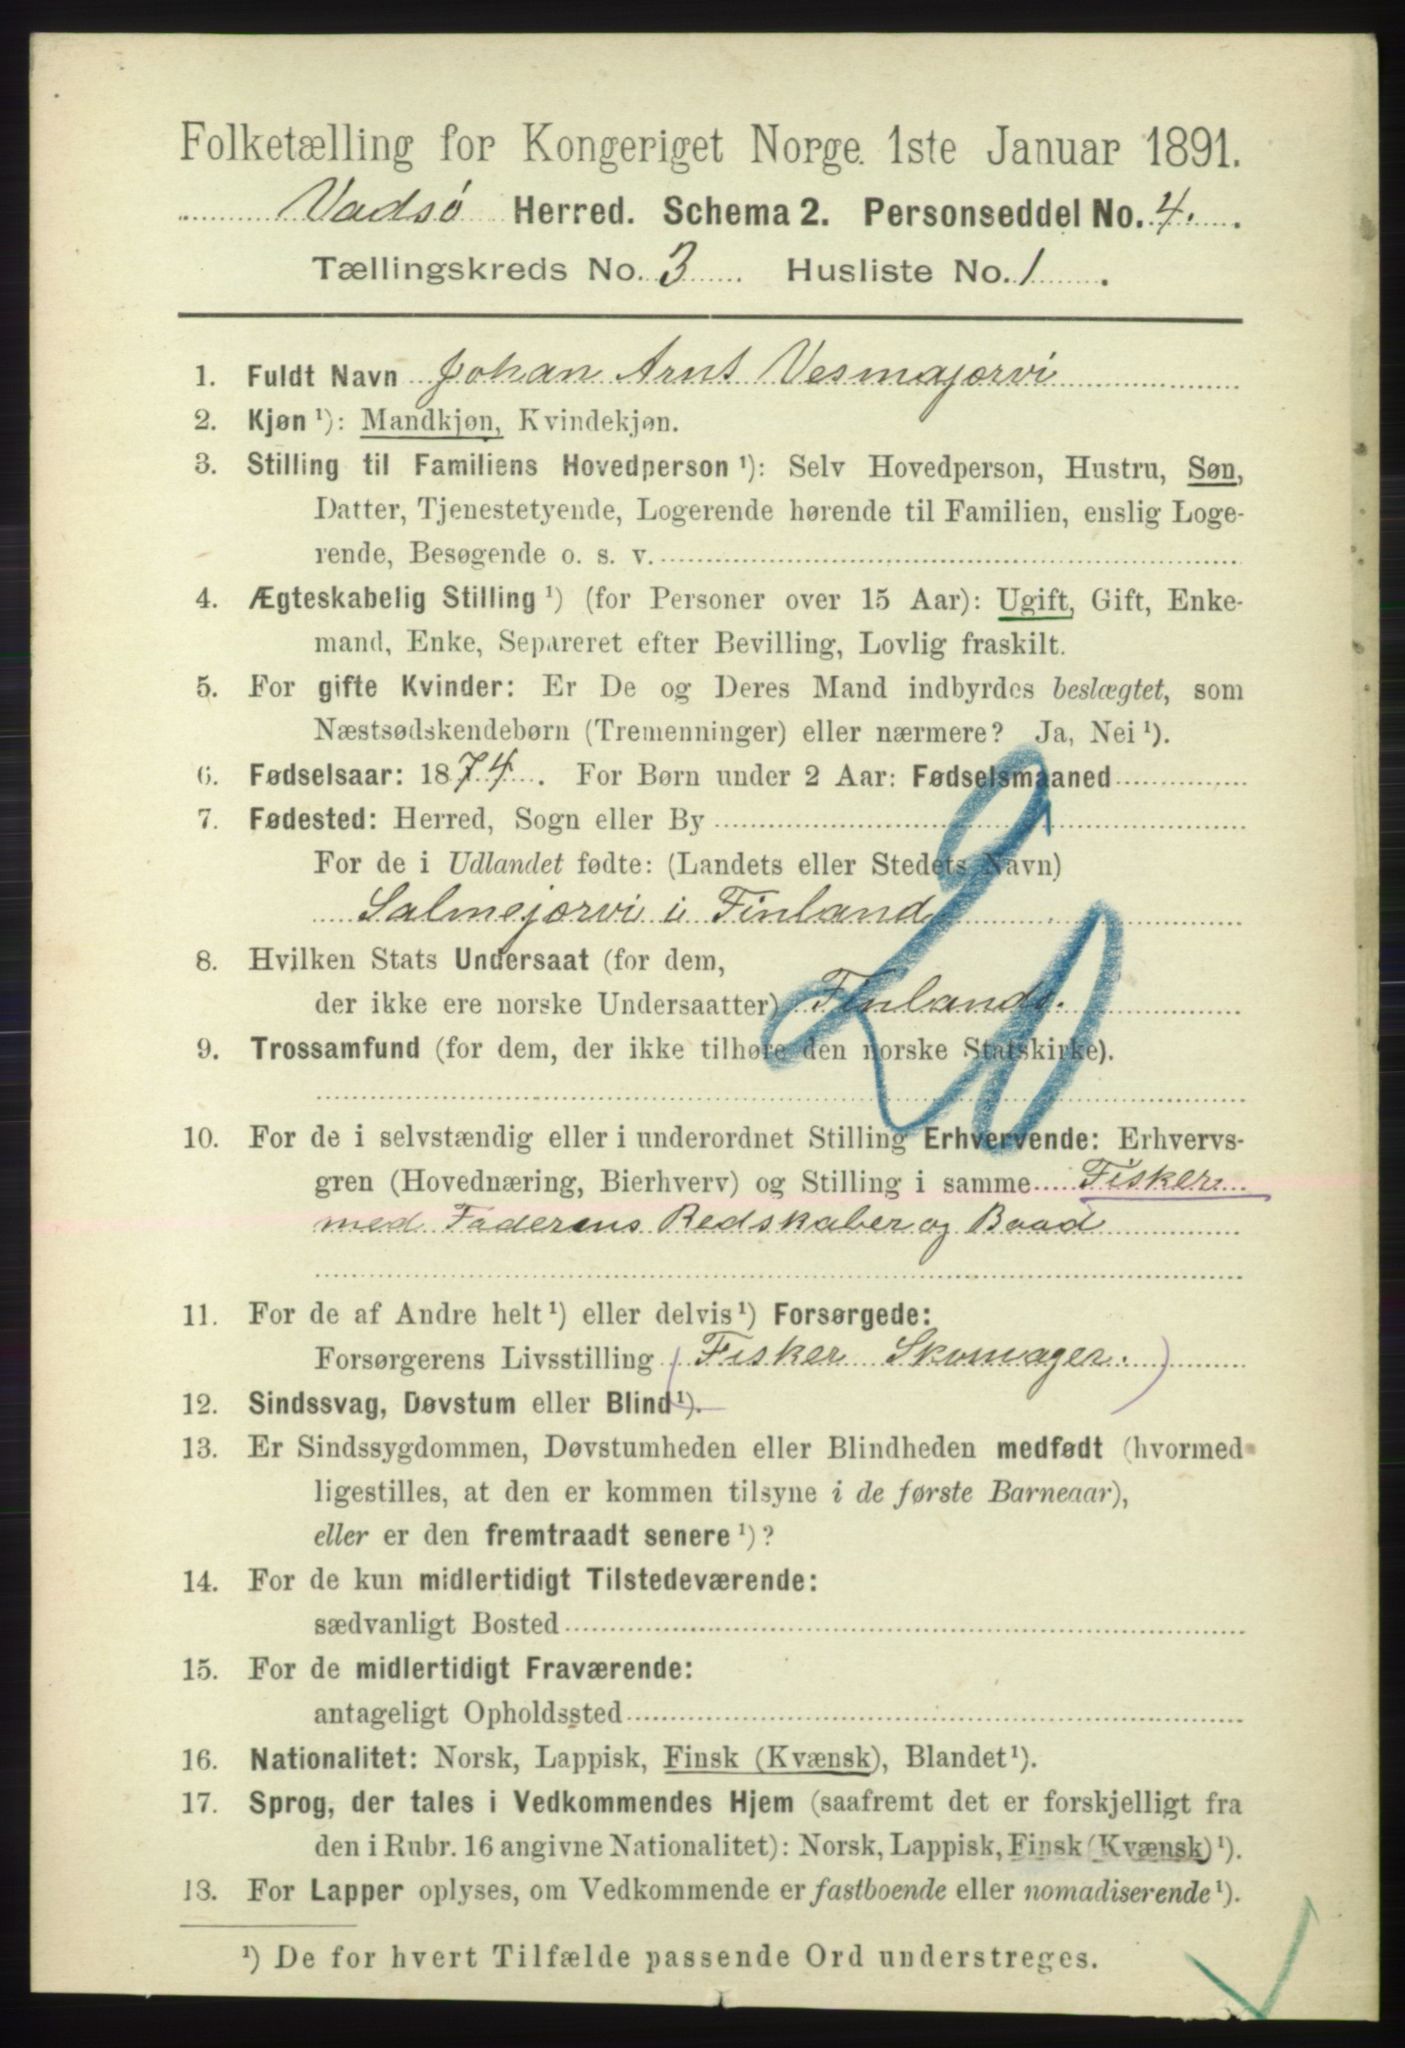 Folketælling for Kongeriget Norge 1ste Januar 1891.
Vadsø Herred. Schema 2. Personseddel No. 4.
Tællingskreds No. 3 Husliste No. 1.
1. Fuldt Navn Johan Arnt Vesmajærvi
2. Kjøn ¹): Mandkjøn, Kvindekjøn.
3. Stilling til Familiens Hovedperson ¹): Selv Hovedperson, Hustru, Søn,
Datter, Tjenestetyende, Logerende hørende til Familien, enslig Loge-
rende, Besøgende o. s. v.
4. Ægteskabelig Stilling ¹) (for Personer over 15 Aar): Ugift, Gift, Enke-
mand, Enke, Separeret efter Bevilling, Lovlig fraskilt.
5. For gifte Kvinder: Er De og Deres Mand indbyrdes beslægtet, som
Næstsødskendebørn (Tremenninger) eller nærmere? Ja, Nei ¹).
6. Fødselsaar: 1874. For Børn under 2 Aar: Fødselsmaaned
7. Fødested: Herred, Sogn eller By
For de i Udlandet fødte: (Landets eller Stedets Navn)
Salmejærvi i Finland
8. Hvilken Stats Undersaat (for dem,
der ikke ere norske Undersaatter) Finlands.
9. Trossamfund (for dem, der ikke tilhøre den norske Statskirke).
10. For de i selvstændig eller i underordnet Stilling Erhvervende: Erhvervs-
gren (Hovednæring, Bierhverv) og Stilling i samme Fisker
med Faderens Redskaber og Baad
11. For de af Andre helt ¹) eller delvis ¹) Forsørgede:
Forsørgerens Livsstilling (Fisker Skomager.)
12. Sindssvag, Døvstum eller Blind ¹).
13. Er Sindssygdommen, Døvstumheden eller Blindheden medfødt (hvormed
ligestilles, at den er kommen tilsyne i de første Barneaar),
eller er den fremtraadt senere ¹)?
14. For de kun midlertidigt Tilstedeværende:
sædvanligt Bosted
15. For de midlertidigt Fraværende:
antageligt Opholdssted
16. Nationalitet: Norsk, Lappisk, Finsk (Kvænsk), Blandet ¹).
17. Sprog, der tales i Vedkommendes Hjem (saafremt det er forskjelligt fra
den i Rubr. 16 angivne Nationalitet): Norsk, Lappisk, Finsk (Kvænsk) ¹).
13. For Lapper oplyses, om Vedkommende er fastboende eller nomadiserende ¹).
¹) De for hvert Tilfælde passende Ord understreges.